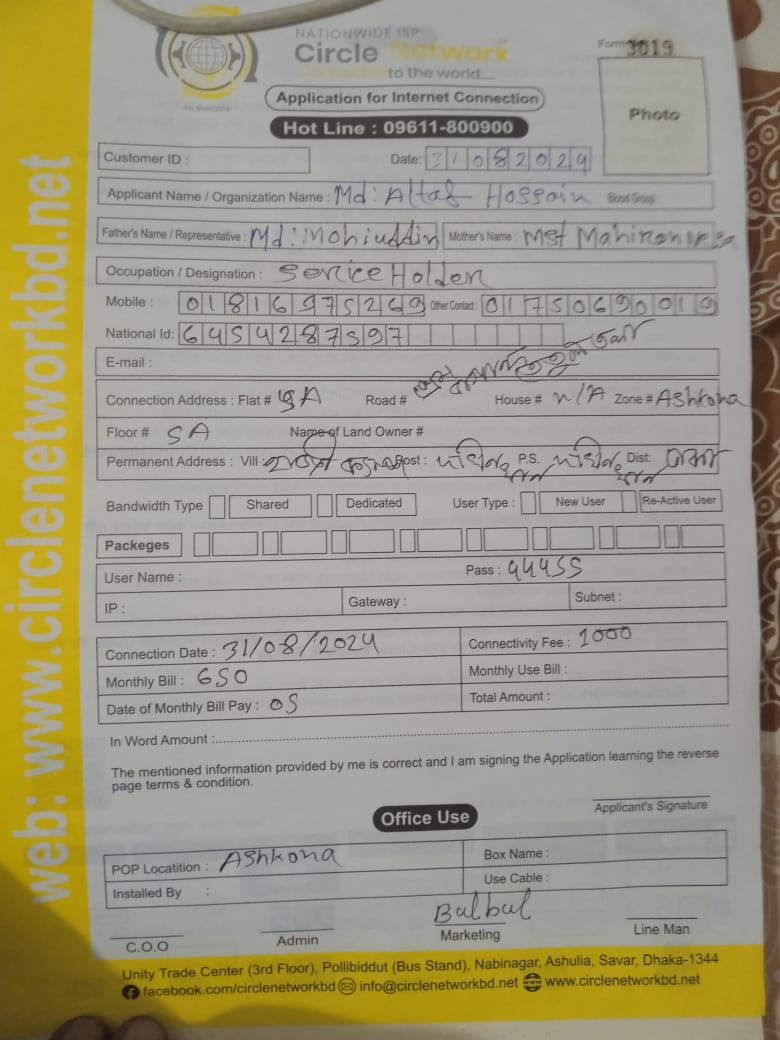 NATIONWIDE ISP
Circle Network
to the world...
Form 3019
Photo
Application for Internet Connection
Hot Line : 09611-800900
Customer ID :
Date: 31082024
Applicant Name / Organization Name : Md: Altaf Hossain Blood Group
Father's Name / Representative : Md: Mohiuddin Mother's Name : Mst
Occupation / Designation : Service Holder
Mobile : 01816975269 Other Contact : 01750690019
National Id: 6454287597
E-mail :
Connection Address : Flat # 9A Road # House # n/A Zone # Ashkona
Floor # 5A Name of Land Owner #
Permanent Address : Vill : Post : P.S. Dist: ঢাকা
Bandwidth Type Shared Dedicated User Type : New User Re-Active User
Packeges
User Name : Pass : 44455
IP : Gateway : Subnet :
Connection Date : 31/08/2024 Connectivity Fee : 1000
Monthly Bill : 650 Monthly Use Bill :
Date of Monthly Bill Pay : 05 Total Amount :
In Word Amount :
The mentioned information provided by me is correct and I am signing the Application learning the reverse
page terms & condition.
Applicant's Signature
Office Use
POP Locatition : Ashkona Box Name :
Installed By : Use Cable :
Bulbul
C.O.O Admin Marketing Line Man
Unity Trade Center (3rd Floor), Pollibiddut (Bus Stand), Nabinagar, Ashulia, Savar, Dhaka-1344
facebook.com/circlenetworkbd info@circlenetworkbd.net www.circlenetworkbd.net
web: www.circlenetworkbd.net